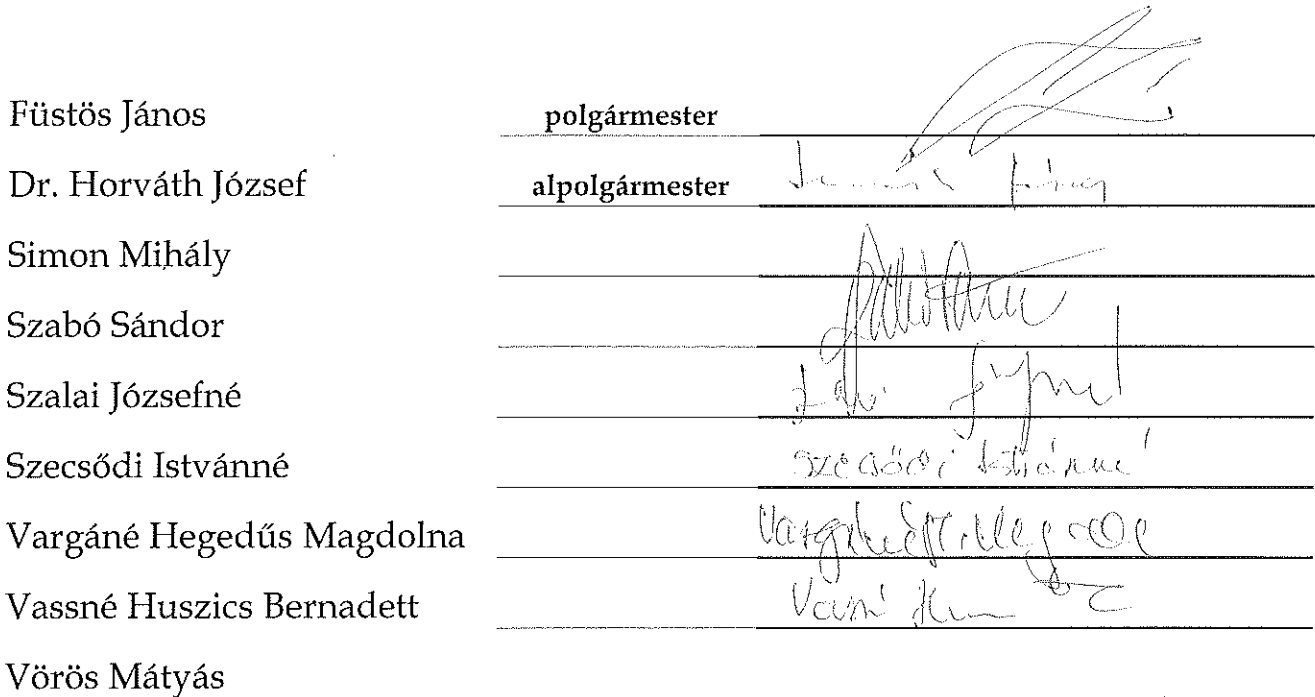 Füstös János polgármester
Dr. Horváth József alpolgármester
Simon Mihály
Szabó Sándor
Szalai Józsefné
Szecsődi Istvánné Szecsődi Istvánné
Vargáné Hegedűs Magdolna
Vassné Huszics Bernadett
Vörös Mátyás